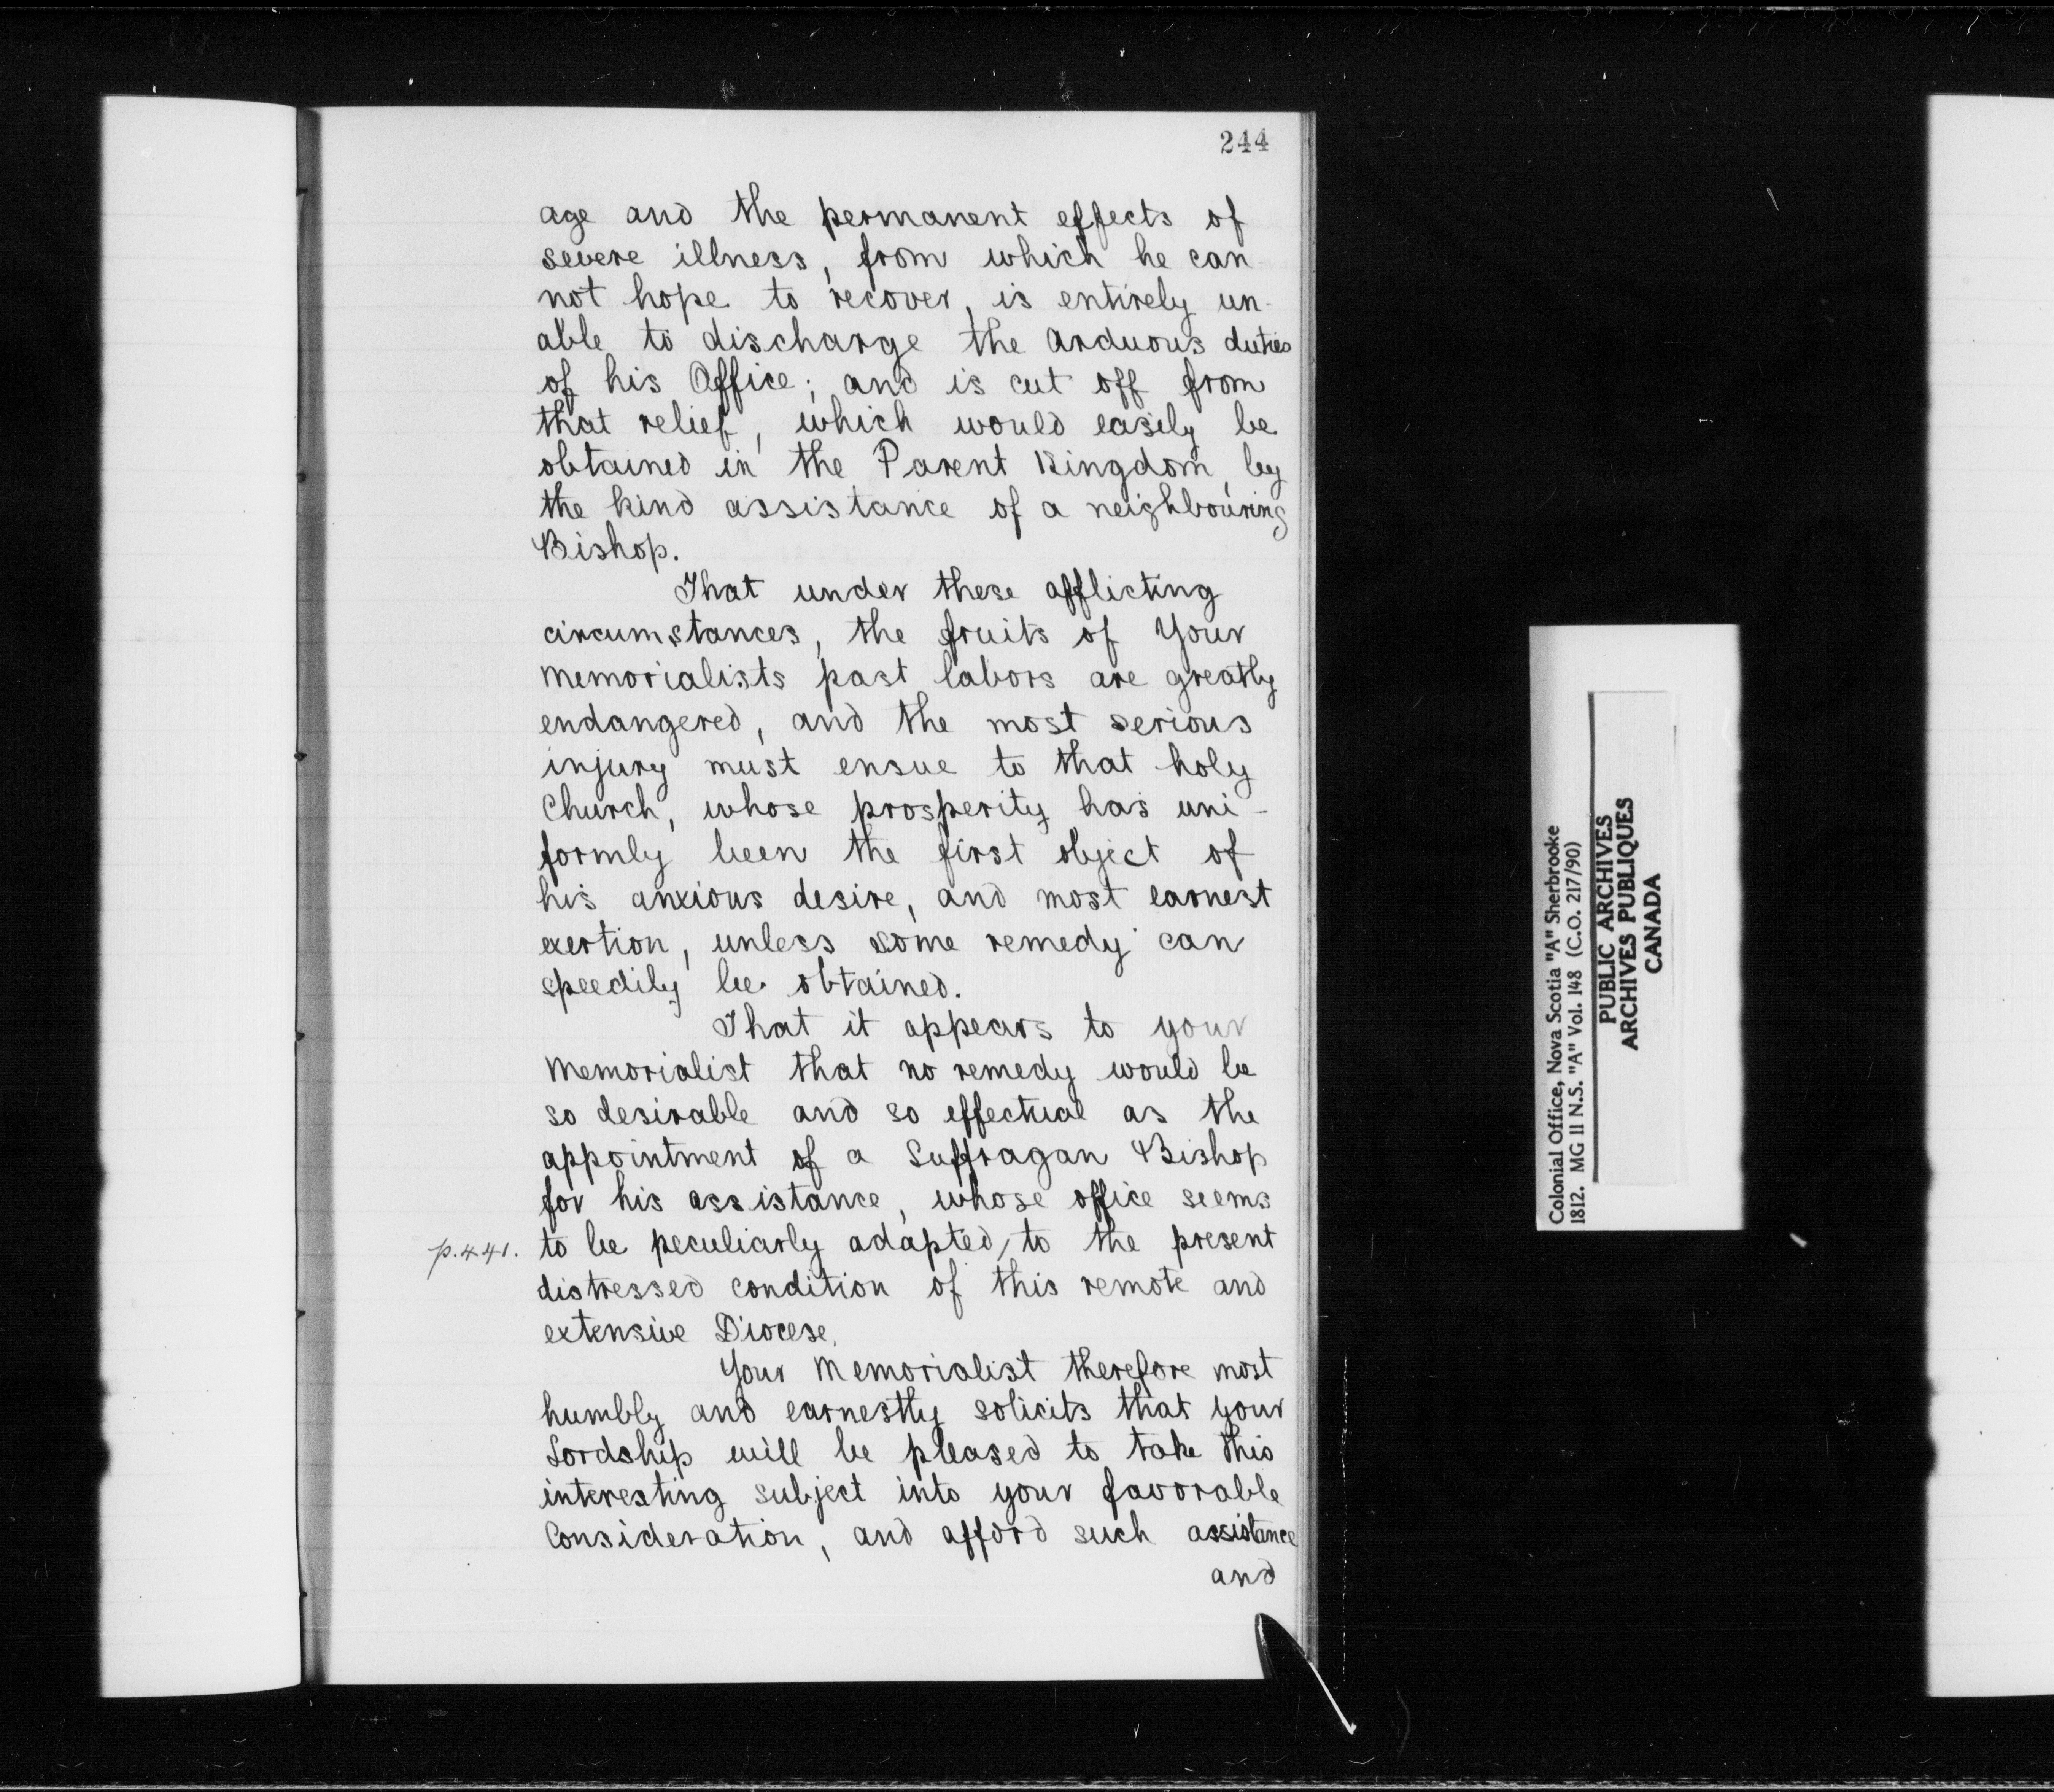 244
age and the permanent effects of
severe illness, from which he can
not hope to recover, is entirely un-
able to discharge the arduous duties
of his Office; and is cut off from
that relief, which would easily be
obtained in the Parent Kingdom, by
the kind assistance of a neighbouring
Bishop.
That under these afflicting
circumstances, the fruits of Your
Memorialists past labors are greatly
endangered, and the most serious
injury must ensue to that holy
Church, whose prosperity has uni-
formly been the first object of
his anxious desire, and most earnest
exertion, unless some remedy can
speedily be obtained.
That it appears to your
Memorialist that no remedy would be
so desirable and so effectual as the
appointment of a Suffragan Bishop
for his assistance, whose office seems
p.441. to be peculiarly adapted, to the present
distressed condition of this remote and
extensive Diocese.
Your Memorialist therefore most
humbly and earnestly solicits that your
Lordship will be pleased to take this
interesting subject into your favorable
Consideration, and afford such assistance
and
Colonial Office, Nova Scotia "A" Sherbrooke
1812. MG 11 N.S. "A" Vol. 148 (C.O. 217/90)
PUBLIC ARCHIVES
ARCHIVES PUBLIQUES
CANADA